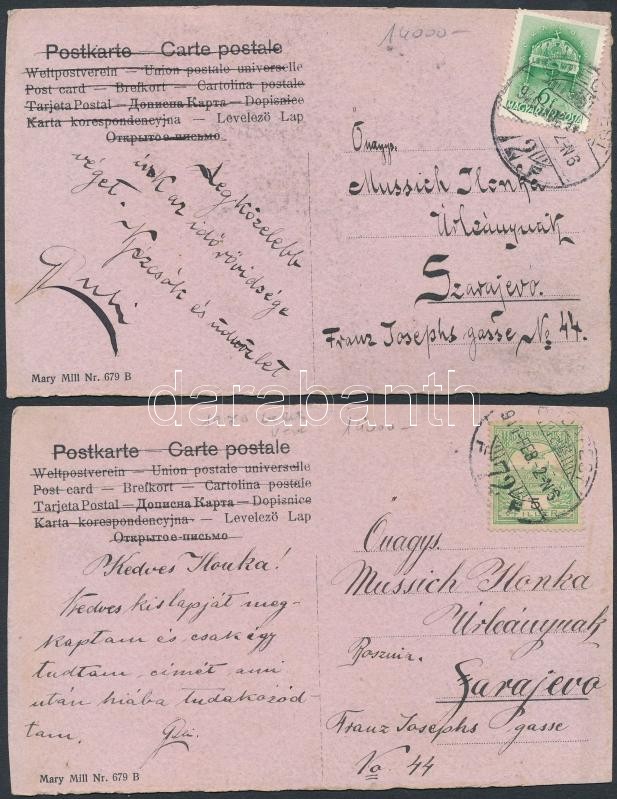 Postkarte — Carte postale
Weltpostverein — Union postale universelle
Post card — Brefkort — Cartolina postale
Tarjeta Postal — Дописна Карта — Dopisnice
Karta korespondencyjna — Levelező Lap
Открытое письмо
14000-
6f
MAGYARORSZÁG
Legközelebb
írok az idő rövidsége
véget. Kézcsók és üdvözlet
Önagys.
Mussich Ilonka
Úrleánynak
Szarajevo.
Franz Josephs gasse No 44.
Mary Mill Nr. 679 B
darabanth
Postkarte — Carte postale
Weltpostverein — Union postale universelle
Post card — Brefkort — Cartolina postale
Tarjeta Postal — Дописна Карта — Dopisnice
Karta korespondencyjna — Levelező Lap
Открытое письмо
Kedves Ilonka!
Kedves kis lapját meg-
kaptam és csak úgy
tudtam, címét ami
után hiába tudakozód-
tam.
FILLÉR
Önagys.
Mussich Ilonka
Úrleánynak
Bosznia.
Sarajevo
Franz Josephs gasse
No 44
Mary Mill Nr. 679 B